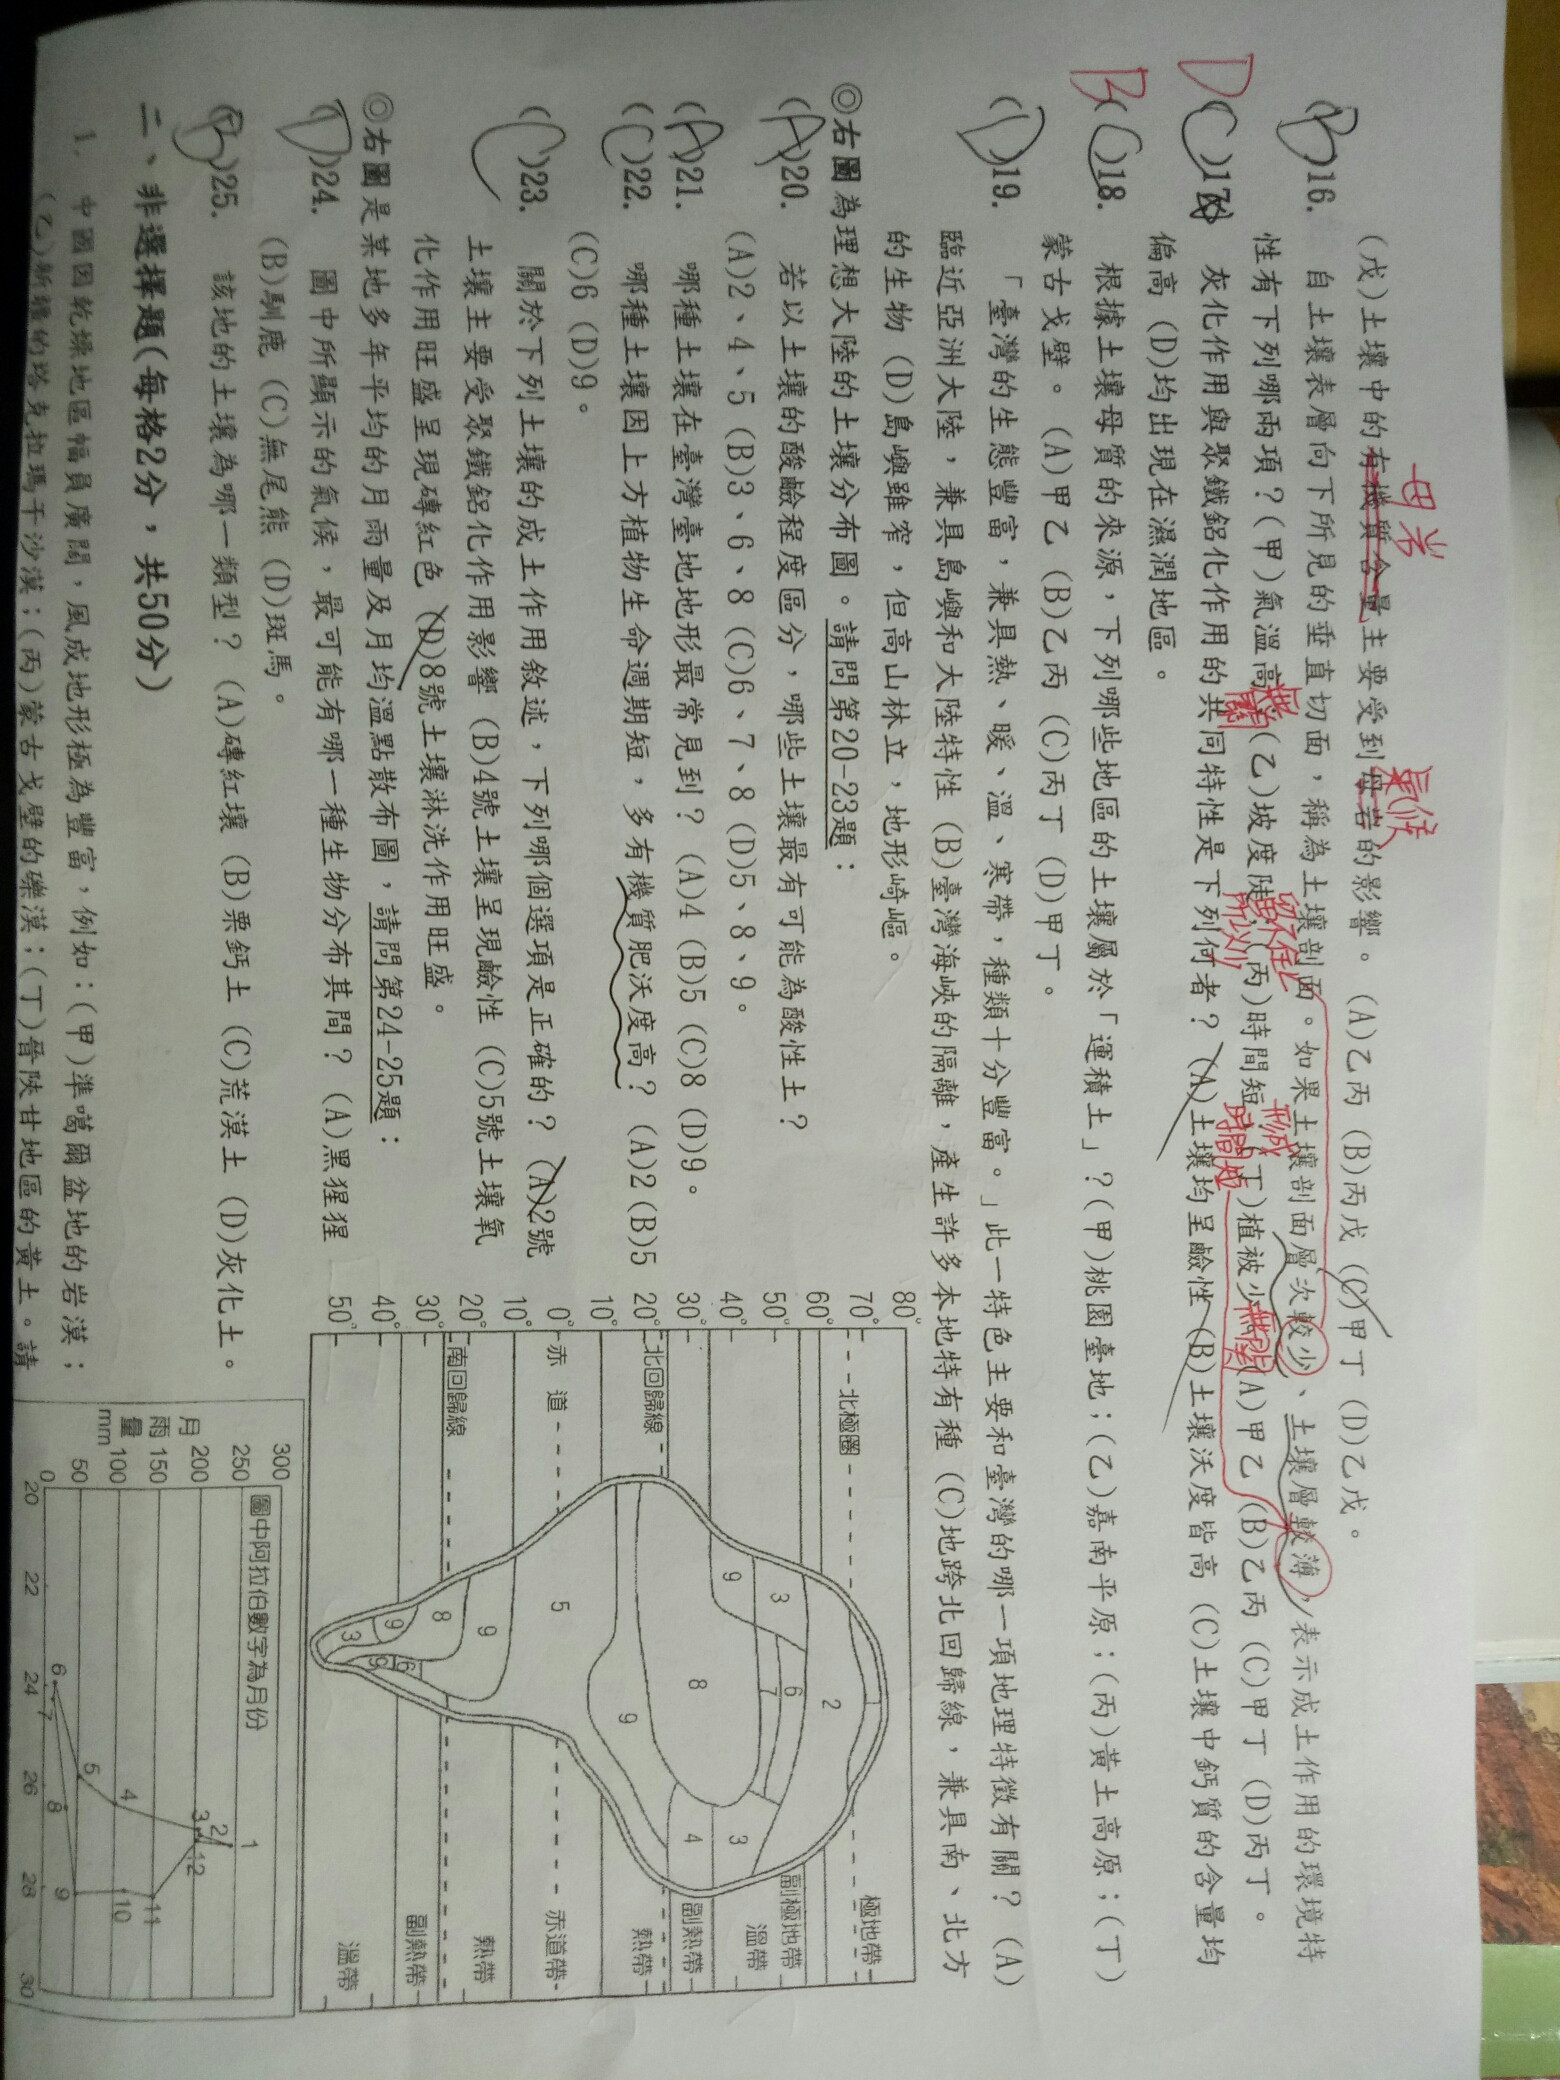 (戊)土壤中的有機質含量主要受到母岩的影響。(A)乙丙 (B)丙戊 (C)甲丁 (D)乙戊。
母岩
氣候
(B)16. 自土壤表層向下所見的垂直切面,稱為土壤剖面。如果土壤剖面層次較少、土壤層較薄,表示成土作用的環境特
性有下列哪兩項?(甲)氣溫高;(乙)坡度陡;(丙)時間短;(丁)植被少 (A)甲乙 (B)乙丙 (C)甲丁 (D)丙丁。
無關
留不住
所以少
形成
時間短
D (C)17. 灰化作用與聚鐵鋁化作用的共同特性是下列何者?(A)土壤均呈鹼性 (B)土壤沃度皆高 (C)土壤中鈣質的含量均
偏高 (D)均出現在濕潤地區。
B (C)18. 根據土壤母質的來源,下列哪些地區的土壤屬於「運積土」?(甲)桃園臺地;(乙)嘉南平原;(丙)黃土高原;(丁)
蒙古戈壁。(A)甲乙 (B)乙丙 (C)丙丁 (D)甲丁。
(D)19. 「臺灣的生態豐富,兼具熱、暖、溫、寒帶,種類十分豐富。」此一特色主要和臺灣的哪一項地理特徵有關?(A)
臨近亞洲大陸,兼具島嶼和大陸特性 (B)臺灣海峽的隔離,產生許多本地特有種 (C)地跨北回歸線,兼具南、北方
的生物 (D)島嶼雖窄,但高山林立,地形崎嶇。
◎右圖為理想大陸的土壤分布圖。請問第20-23題:
(A)20. 若以土壤的酸鹼程度區分,哪些土壤最有可能為酸性土?
(A)2、4、5 (B)3、6、8 (C)6、7、8 (D)5、8、9。
(A)21. 哪種土壤在臺灣臺地地形最常見到?(A)4 (B)5 (C)8 (D)9。
(C)22. 哪種土壤因上方植物生命週期短,多有機質肥沃度高?(A)2 (B)5
(C)6 (D)9。
(C)23. 關於下列土壤的成土作用敘述,下列哪個選項是正確的?(A)2號
土壤主要受聚鐵鋁化作用影響 (B)4號土壤呈現鹼性 (C)5號土壤氧
化作用旺盛呈現磚紅色 (D)8號土壤淋洗作用旺盛。
◎右圖是某地多年平均的月雨量及月均溫點散布圖,請問第24-25題:
(D)24. 圖中所顯示的氣候,最可能有哪一種生物分布其間?(A)黑猩猩
(B)馴鹿 (C)無尾熊 (D)斑馬。
(B)25. 該地的土壤為哪一類型?(A)磚紅壤 (B)栗鈣土 (C)荒漠土 (D)灰化土。
二、非選擇題(每格2分,共50分)
1. 中國因乾燥地區幅員廣闊,風成地形極為豐富,例如:(甲)準噶爾盆地的岩漠;
(乙)新疆的塔克拉瑪干沙漠;(丙)蒙古戈壁的礫漠;(丁)晉陝甘地區的黃土。請
80°
70° 北極圈 極地帶
60° 2 副極地帶
50° 3 6 7 溫帶
40° 9 3
30° 8 4 副熱帶
20° 北回歸線 熱帶
10° 9
0° 赤道 5 赤道帶
10°
20° 9 熱帶
30° 南回歸線 8 副熱帶
40° 9 6
50° 3 9 溫帶
圖中阿拉伯數字為月份
月雨量 mm
300
250
200
150
100
50
0
20 22 24 26 28 30
1 2 3 4 5 6 7 8 9 10 11 12